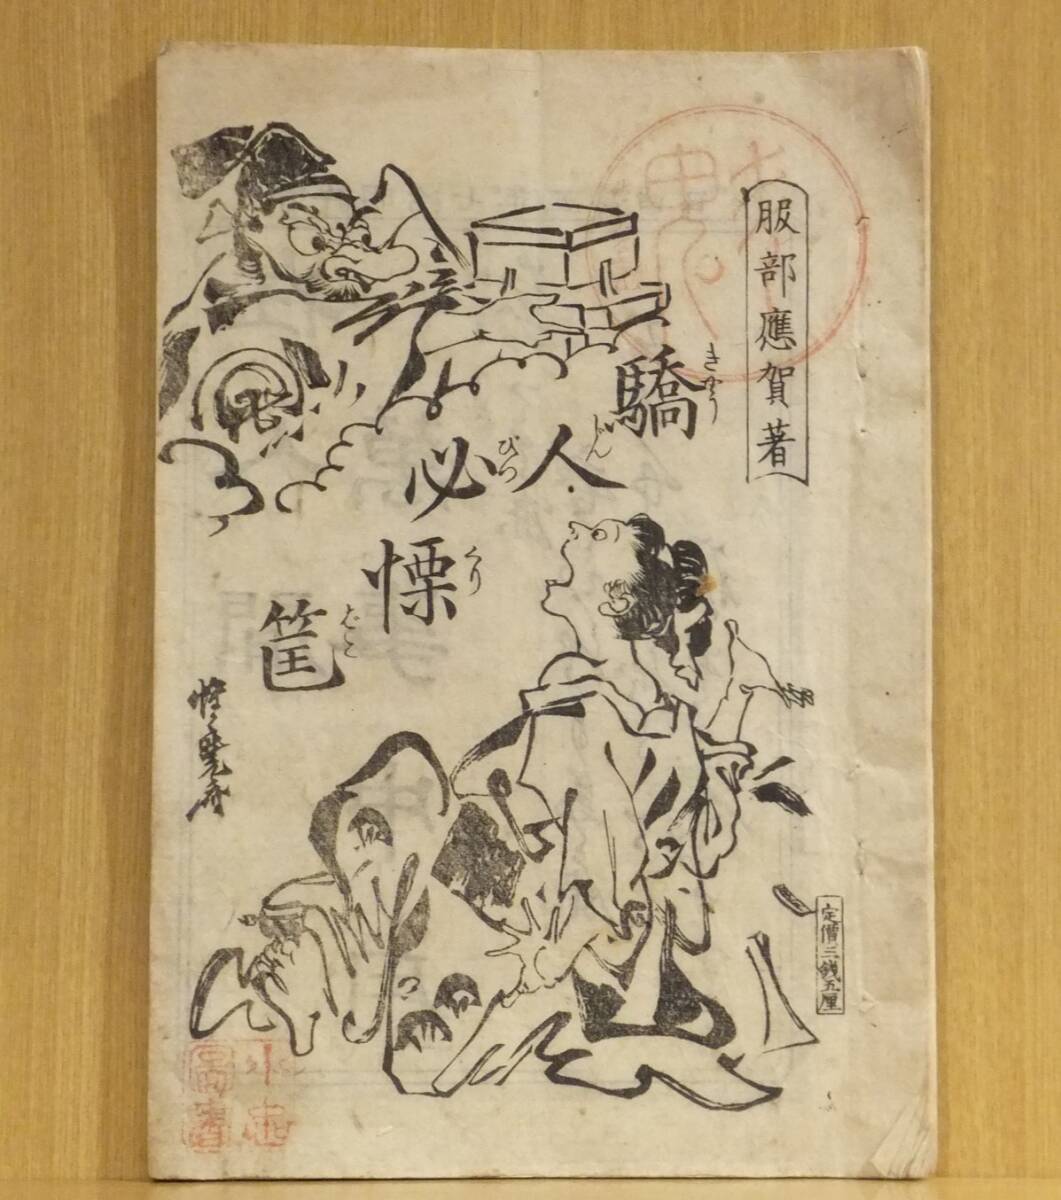 服部應賀著
驕人必慄筐
きやうじんびつくりばこ
惺々暁斎
定價三錢五厘